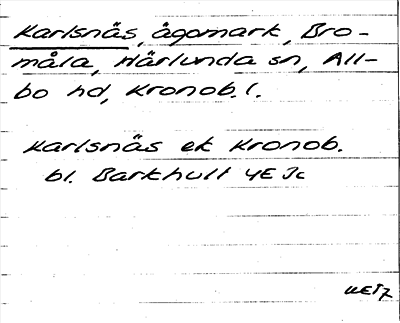 Karlsnäs, ägomark, Bro-
måla, Härlunda sn, All-
bo hd, Kronob. l.
Karlsnäs ek Kronob.
bl. Barkhult 4E Jc